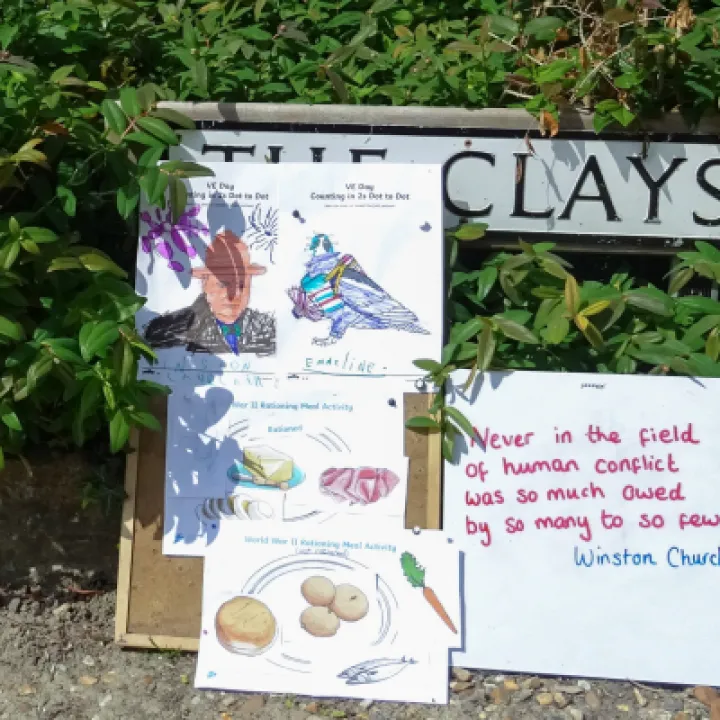 THE CLAYS
VE Day
Counting in 2s Dot to Dot
VE Day
Counting in 2s Dot to Dot
Emmeline
World War II Rationing Meal Activity
Rationed
World War II Rationing Meal Activity
(not rationed)
Never in the field
of human conflict
was so much owed
by so many to so few
Winston Church